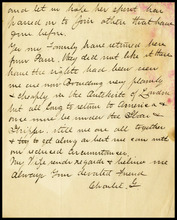 and let us hope her spirit has
passed on to join others that have
gone before.
Yes my family have returned here
from Paris. They did not like it there
have the nights had been seen
we are now Boarding very plainly
& cheaply in the outskirts of London
but all long to return to America &
once more be under the Stars &
Stripes. still we are all together
& try to get along as best we can with
our reduced circumstances.
My Wife sends regards & believe me
always your devoted friend
Charles